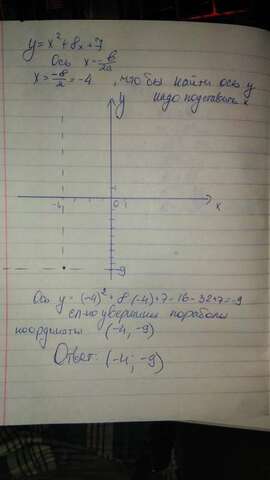 y = x² + 8x + 7
Ось x = -b/2a
x = -8/2 = -4, чтобы найти ось y
надо подставить x
y
-4
0
x
-9
Ось y = (-4)² + 8·(-4) + 7 = 16 - 32 + 7 = -9
вершины параболы
координаты (-4, -9)
Ответ: (-4; -9)